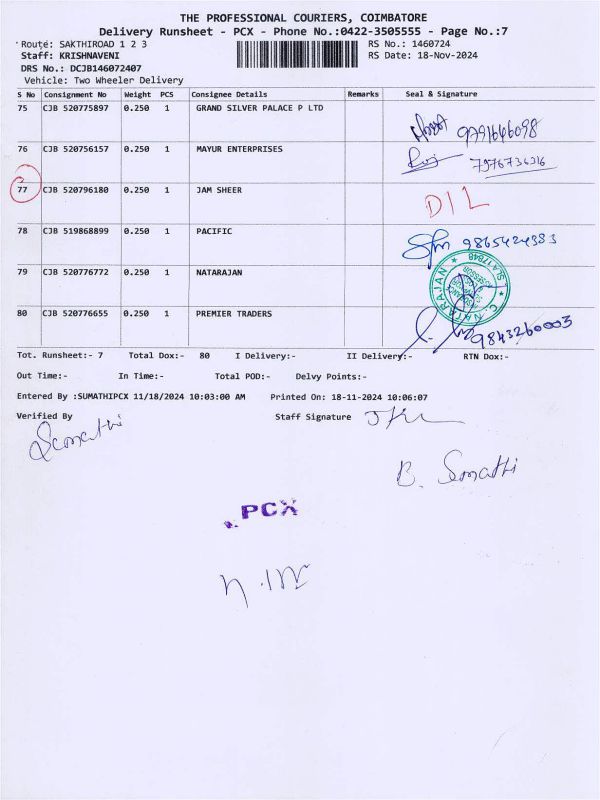 THE PROFESSIONAL COURIERS, COIMBATORE
Delivery Runsheet - PCX - Phone No.:0422-3505555 - Page No.:7
Route: SAKTHIROAD 1 2 3 RS No.: 1460724
Staff: KRISHNAVENI RS Date: 18-Nov-2024
DRS No.: DCJB146072407
Vehicle: Two Wheeler Delivery
S No Consignment No Weight PCS Consignee Details Remarks Seal & Signature
75 CJB 520775897 0.250 1 GRAND SILVER PALACE P LTD 9791646098
76 CJB 520756157 0.250 1 MAYUR ENTERPRISES 7976736216
77 CJB 520796180 0.250 1 JAM SHEER D/L
78 CJB 519868899 0.250 1 PACIFIC 9865424383
79 CJB 520776772 0.250 1 NATARAJAN C. NATARAJAN
80 CJB 520776655 0.250 1 PREMIER TRADERS 9843260003
Tot. Runsheet:- 7 Total Dox:- 80 I Delivery:- II Delivery:- RTN Dox:-
Out Time:- In Time:- Total POD:- Delvy Points:-
Entered By :SUMATHIPCX 11/18/2024 10:03:00 AM Printed On: 18-11-2024 10:06:07
Verified By Staff Signature
Sumathi
B. Sumathi
PCX